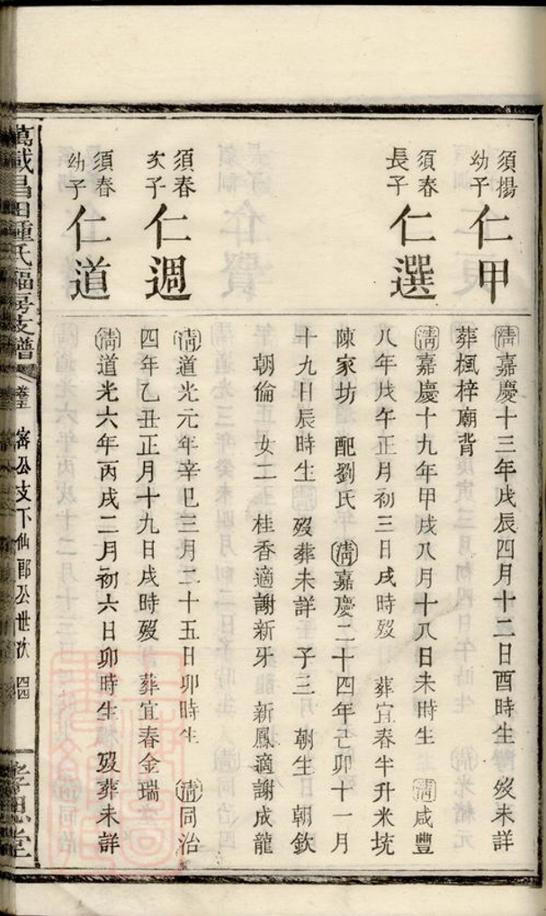 須楊
幼子
仁甲
清嘉慶十三年戊辰四月十二日酉時生 歿未詳
葬楓梓廟背
須春
長子
仁選
清嘉慶十九年甲戌八月十八日未時生 清咸豐
八年戊午正月初三日戌時歿 葬宜春半升米𡋾
陳家坊 配劉氏 清嘉慶二十四年己卯十一月
十九日辰時生 歿葬未詳 子三 朝生 朝欽
朝倫 女二 桂香適謝新牙 新鳳適謝成龍
須春
次子
仁週
清道光元年辛巳三月二十五日卯時生 清同治
四年乙丑正月十九日戌時歿 葬宜春金瑞
須春
幼子
仁道
清道光六年丙戌二月初六日卯時生 歿葬未詳
萬載昌田鍾氏福房支譜
公支下仙郎公世次
孝思堂